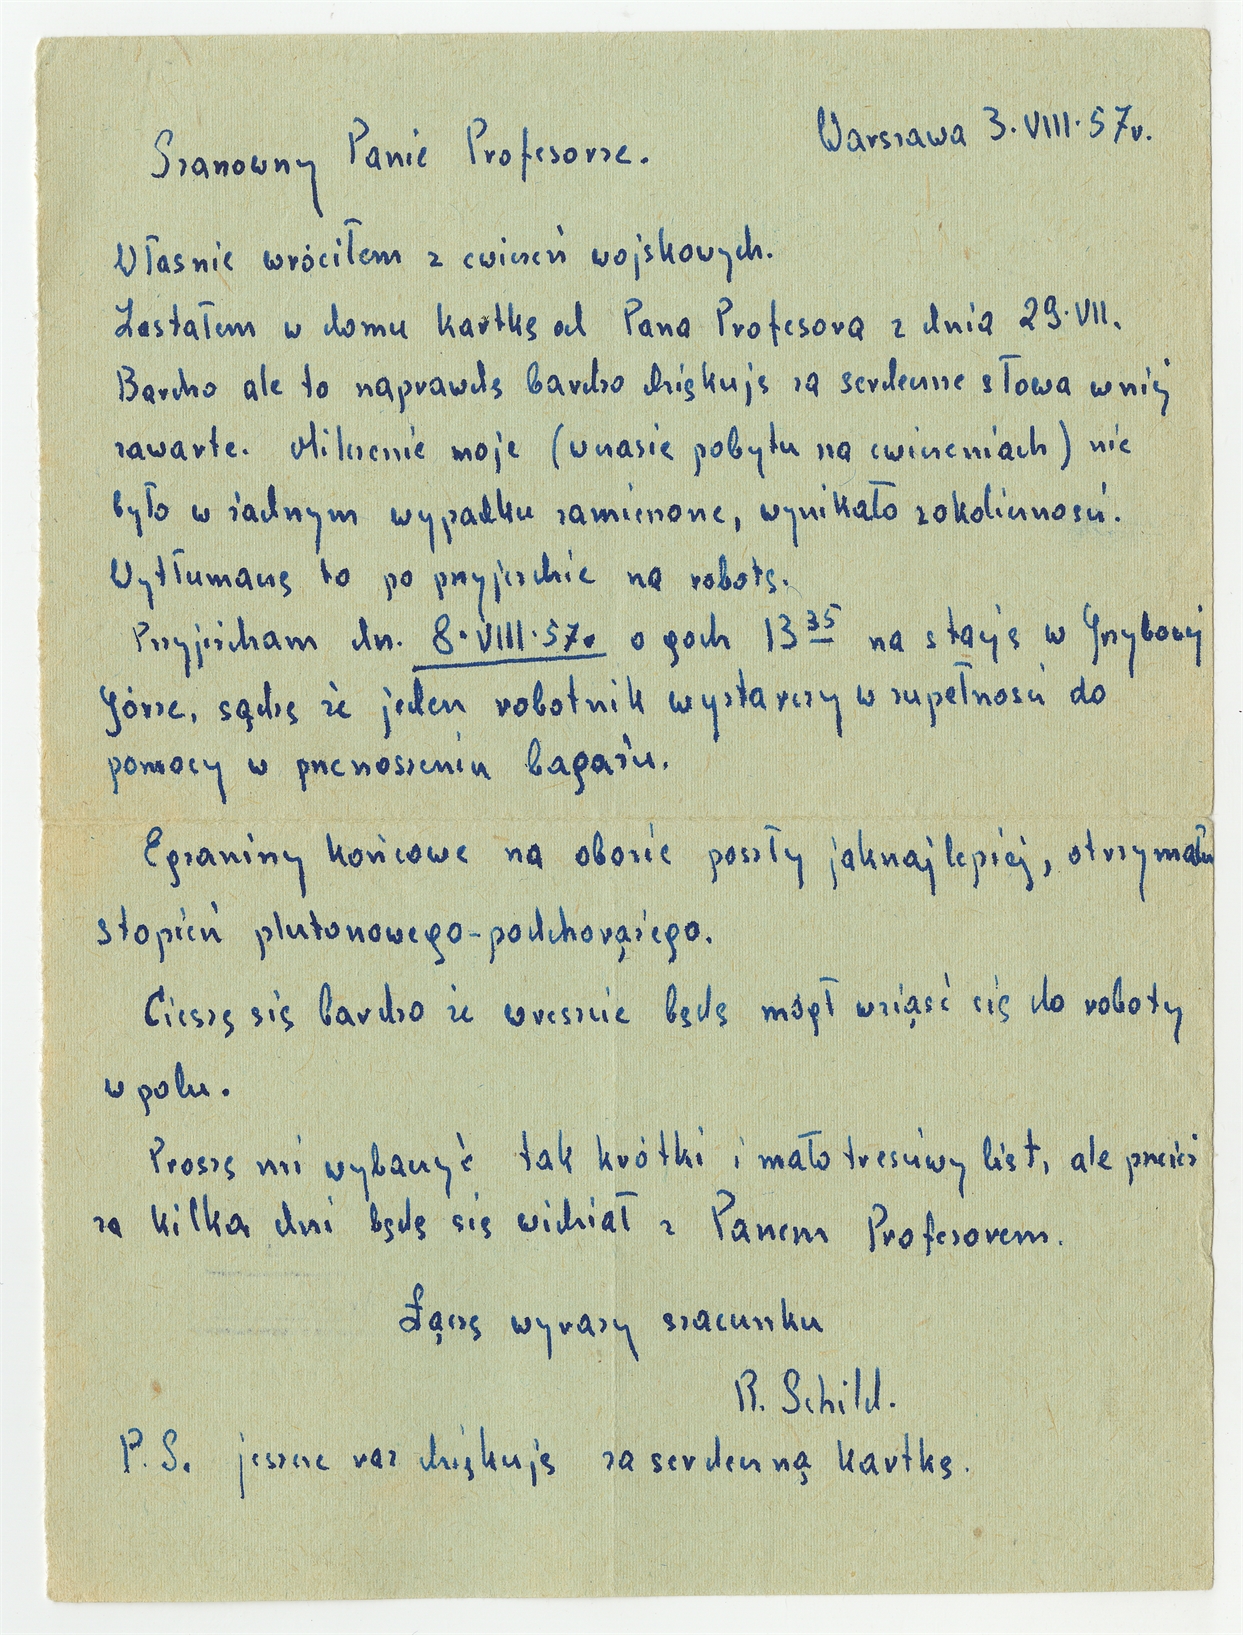 Warszawa 3.VIII.57r.
Szanowny Panie Profesorze.
Właśnie wróciłem z cwiczeń wojskowych.
Zastałem w domu kartkę od Pana Profesora z dnia 29.VII.
Bardzo ale to naprawdę bardzo dziękuję za serdeczne słowa w niej
zawarte. Milczenie moje (w czasie pobytu na cwiczeniach) nie
było w żadnym wypadku zamierzone, wynikało z okoliczności.
Wytłumaczę to po przyjeździe na robotę.
Przyjeżdżam dn. 8.VIII.57r o godz 13 35 na stację w Grzybowej
Górze, sądzę że jeden robotnik wystarczy w zupełności do
pomocy w przenoszeniu bagażu.
Egzaminy końcowe na obozie poszły jaknajlepiej, otrzymałem
stopień plutonowego-podchorążego.
Cieszę się bardzo że wreszcie będę mógł wziąść się do roboty
w polu.
Proszę mi wybaczyć tak krótki i mało treściwy list, ale przecież
za kilka dni będę się widział z Panem Profesorem.
Łączę wyrazy szacunku
R. Schild.
P.S. jeszcze raz dziękuję za serdeczną kartkę.